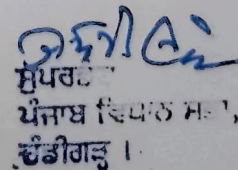 ਸੁਪਰਡੰਟ
ਪੰਜਾਬ ਵਿਧਾਨ ਸਭਾ,
ਚੰਡੀਗੜ੍ਹ ।